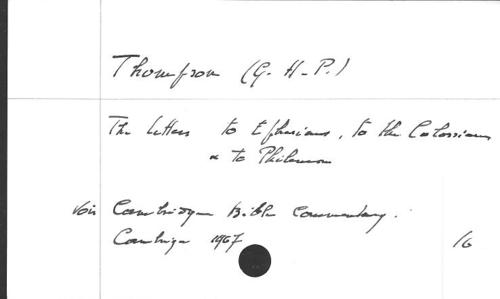 Thompson (G. H-P.)
The Letters to Ephesians, to the Colossians
& to Philemon
Voir Cambridge Bible Commentary.
Cambridge 1967
16